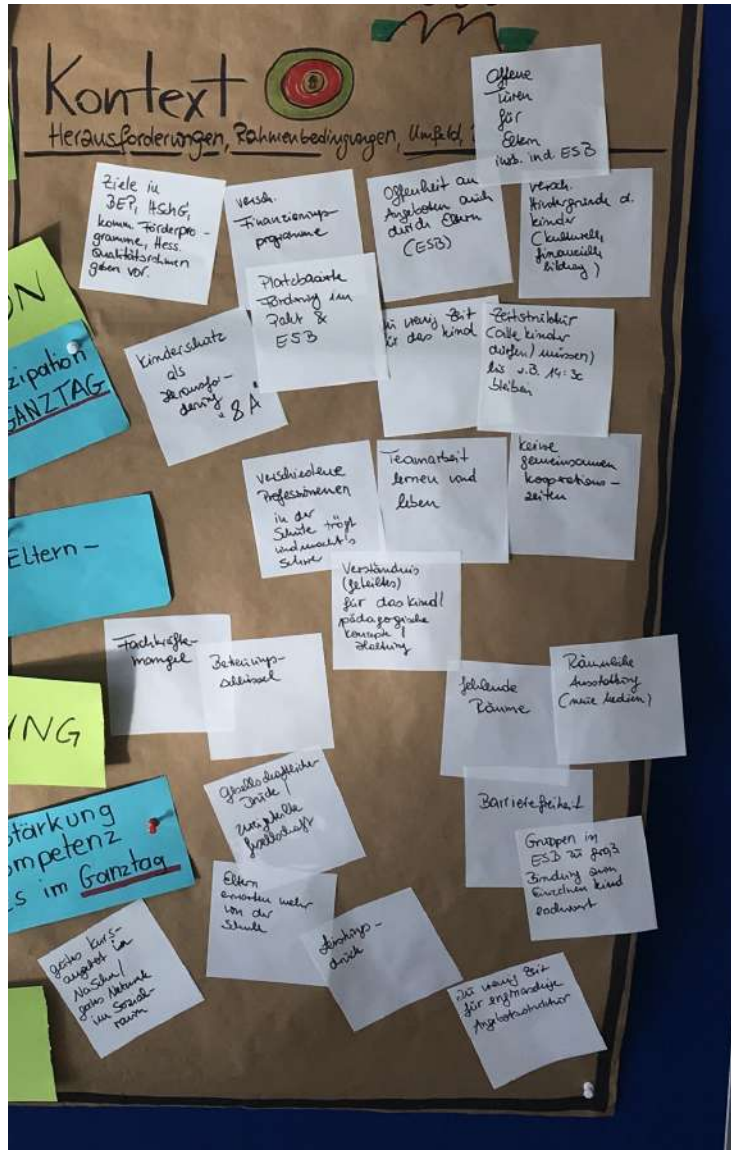 Kontext
Herausforderungen, Rahmenbedingungen, Umfeld,
Offene
Türen
für
Eltern
insb. ind. ESB
Ziele in
BEP, HSchG,
komm. Förderpro-
gramme, Hess.
Qualitätsrahmen
geben vor.
versch.
Finanzierungs-
programme
Offenheit an
Angeboten auch
durch Eltern
(ESB)
versch.
Hintergründe d.
Kinder
(kulturell,
finanziell,
bildung)
Platzbasierte
Förderung im
Pakt &
ESB
zu wenig Zeit
für das Kind
Zeitstruktur
(alle Kinder
dürfen/müssen)
bis z.B. 14:30
bleiben
Kinderschutz
als
Herausfor-
derung
"8A"
verschiedene
Professionen
in der
Schule trägt
und macht's
schwer
Teamarbeit
lernen und
leben
keine
gemeinsamen
Kooperations-
zeiten
Verständnis
(geteiltes)
für das Kind/
pädagogische
Konzepte/
Haltung
Fachkräfte-
mangel
Betreuungs-
schlüssel
fehlende
Räume
Räumliche
Ausstattung
(neue Medien)
Gesellschaftlicher
Druck/
zweigeteilte
Gesellschaft
Barrierefreiheit
Gruppen in
ESB zu groß
Bindung zum
Einzelnen Kind
erschwert
Eltern
erwarten mehr
von der
Schule
Leistungs-
druck
gutes Kurs-
angebot im
NaSchu/
gutes Netzwerk
im Sozial-
raum
zu wenig Zeit
für engmaschige
Angebotsstruktur
ON
zipation
GANZTAG
Eltern-
NG
stärkung
ompetenz
s im Ganztag